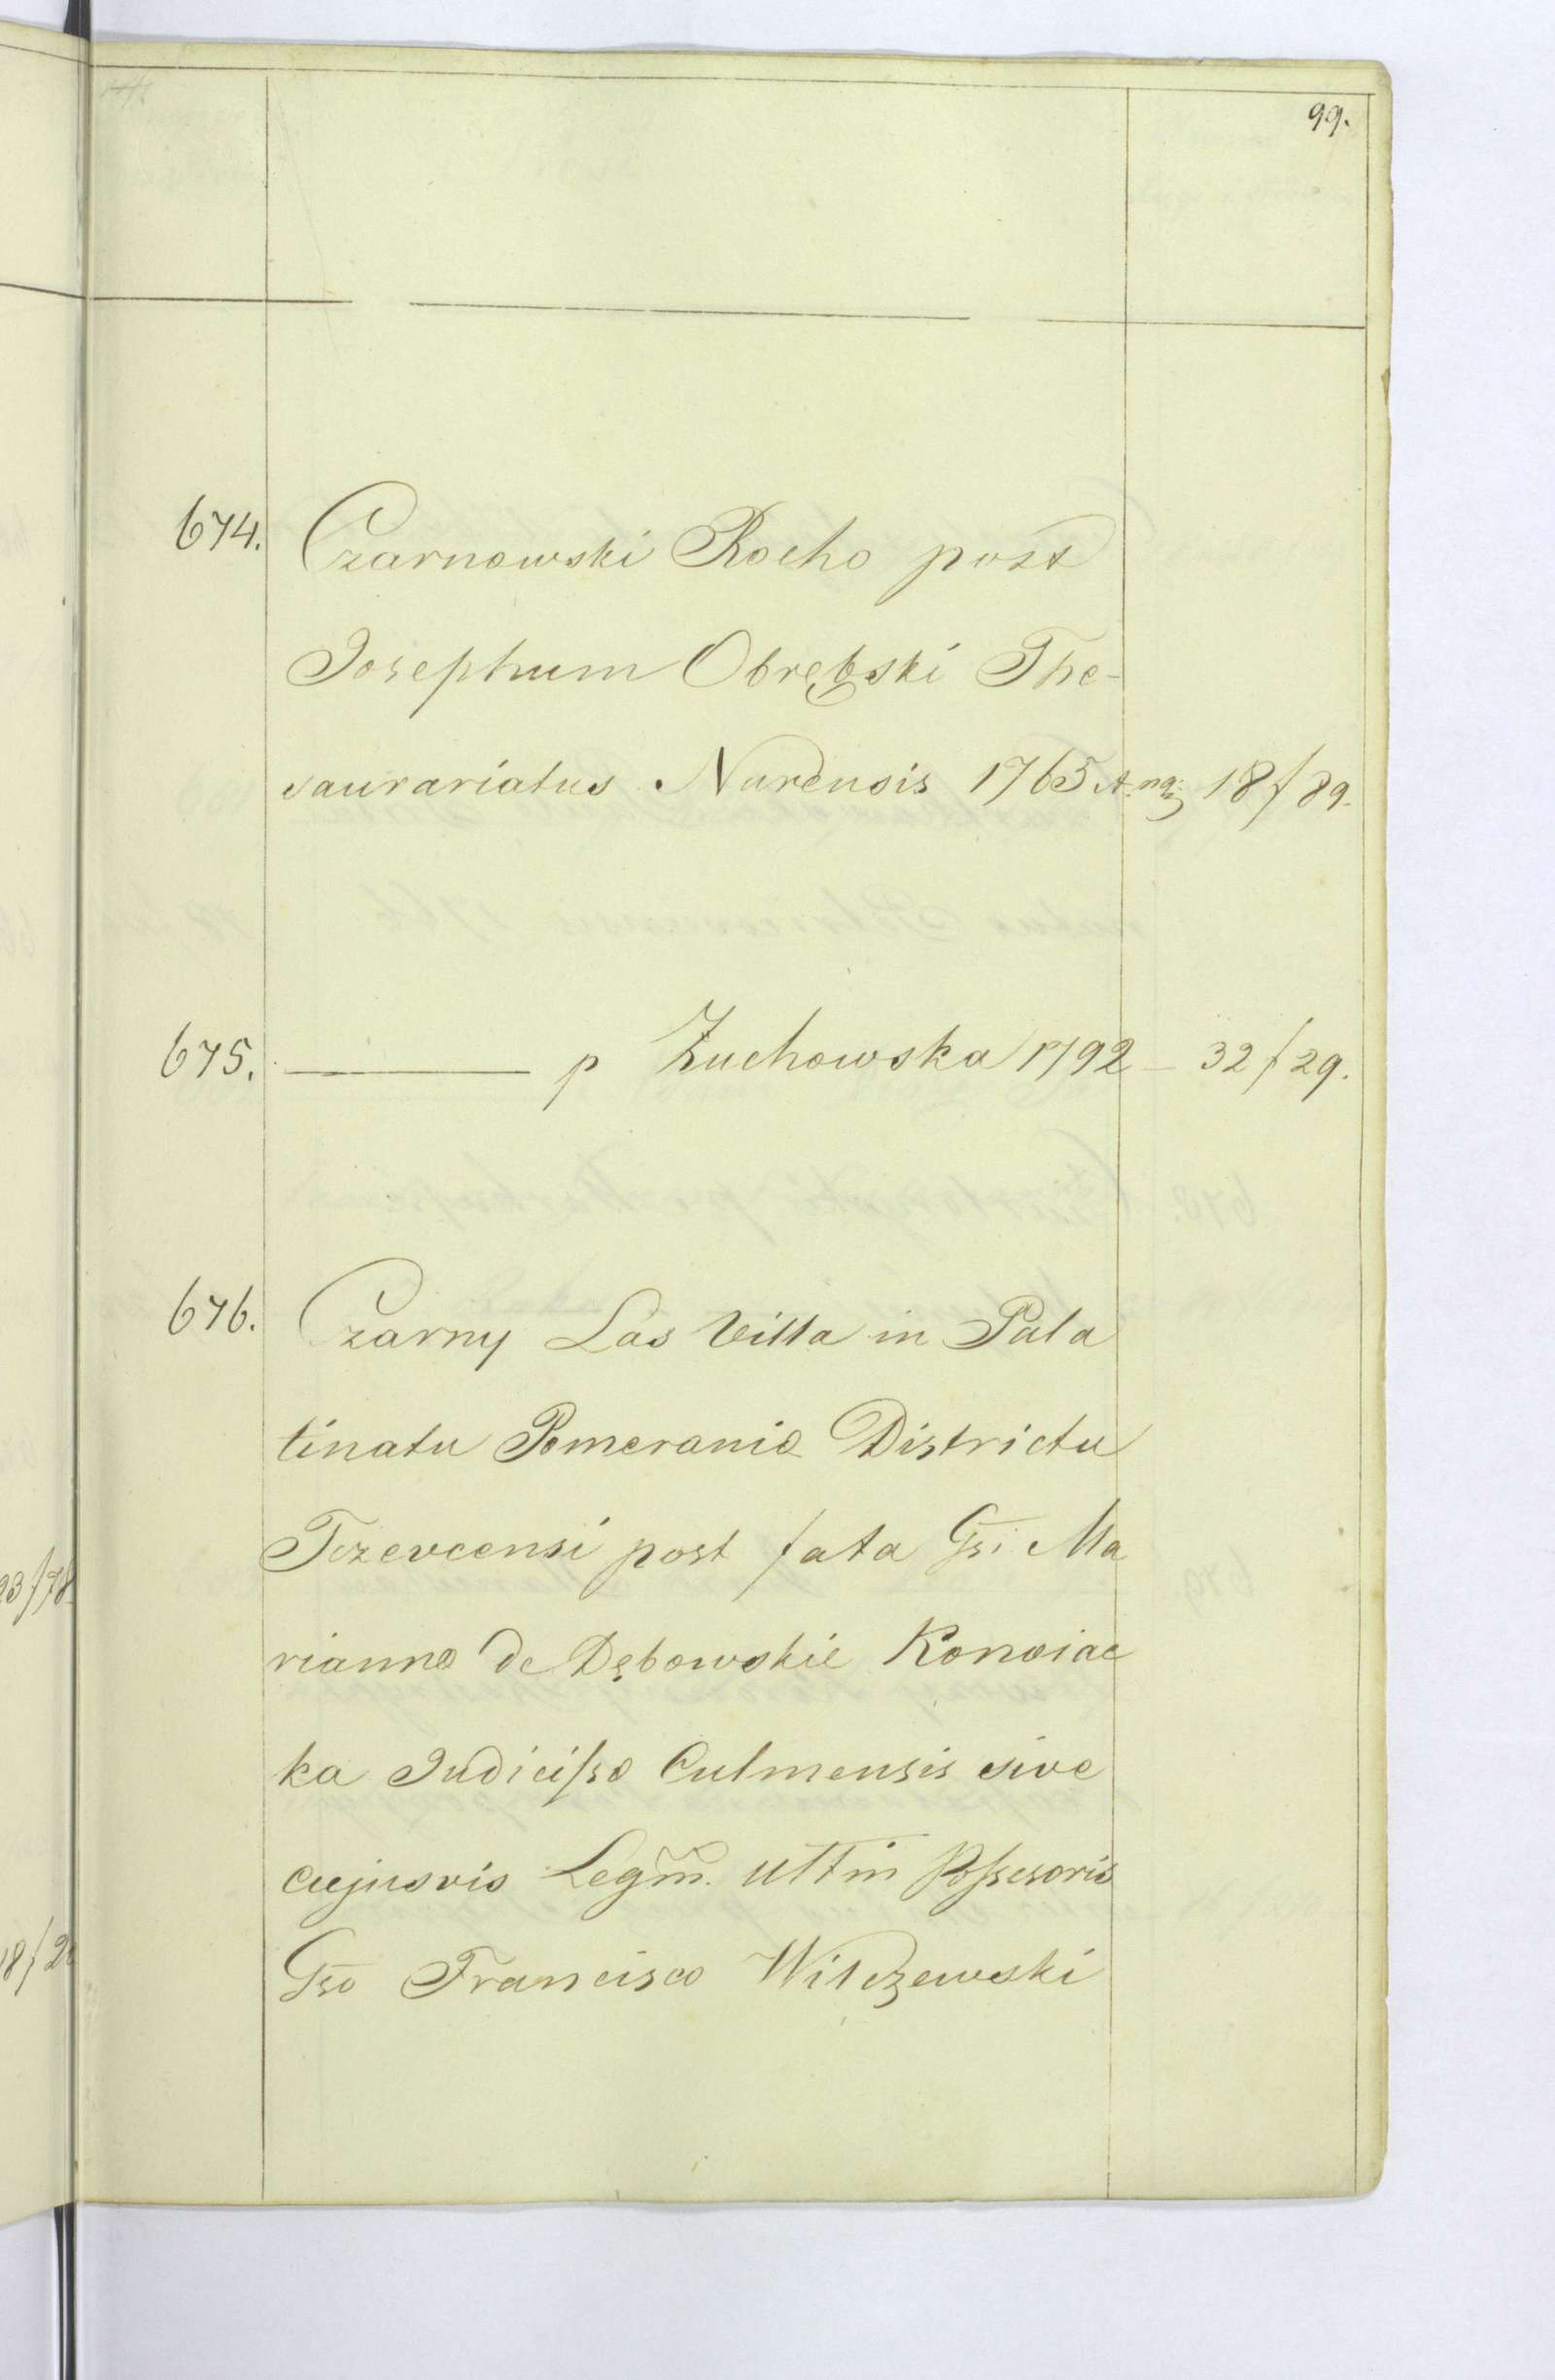 99.
674. Czarnowski Rocho post
Josephum Obrębski The-
saurariatus Nurensis 1765 18/89.
675. —— p Żuchowska 1792 — 32/29.
676. Czarny Las Villa in Pala
tinatu Pomeraniæ Districtu
Tczevcensi post fata Gsi Ma
riannæ de Dębowskie Konoiac
ka Judicissæ Culmensis sive
cujusvis Legm. ultim Possesoris
Gso Francisco Wilczewski